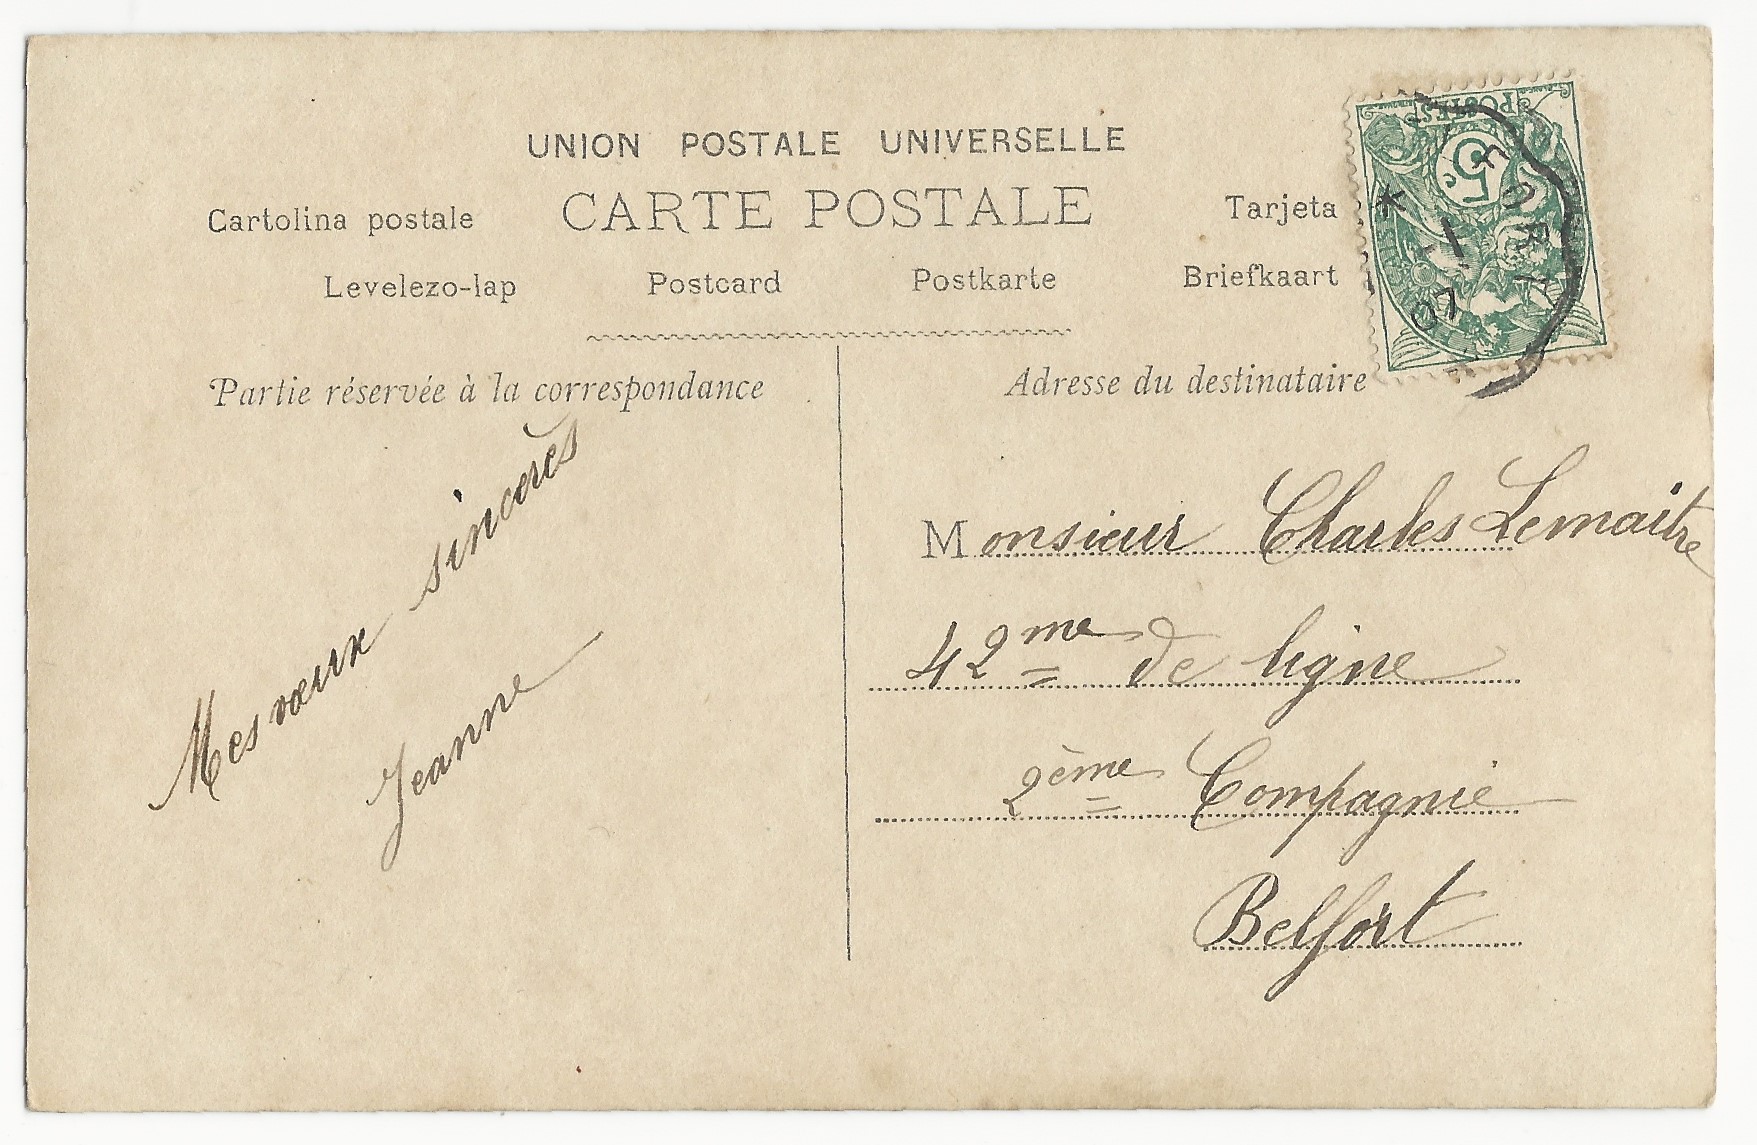 UNION POSTALE UNIVERSELLE
CARTE POSTALE
Cartolina postale
Tarjeta
Levelezo-lap
Postcard
Postkarte
Briefkaart
Partie réservée à la correspondance
Adresse du destinataire
Mes vœux sincères
Jeanne
Monsieur Charles Lemaitre
42me de ligne
2ème Compagnie
Belfort
POSTES
5c
FORT
* -1
07